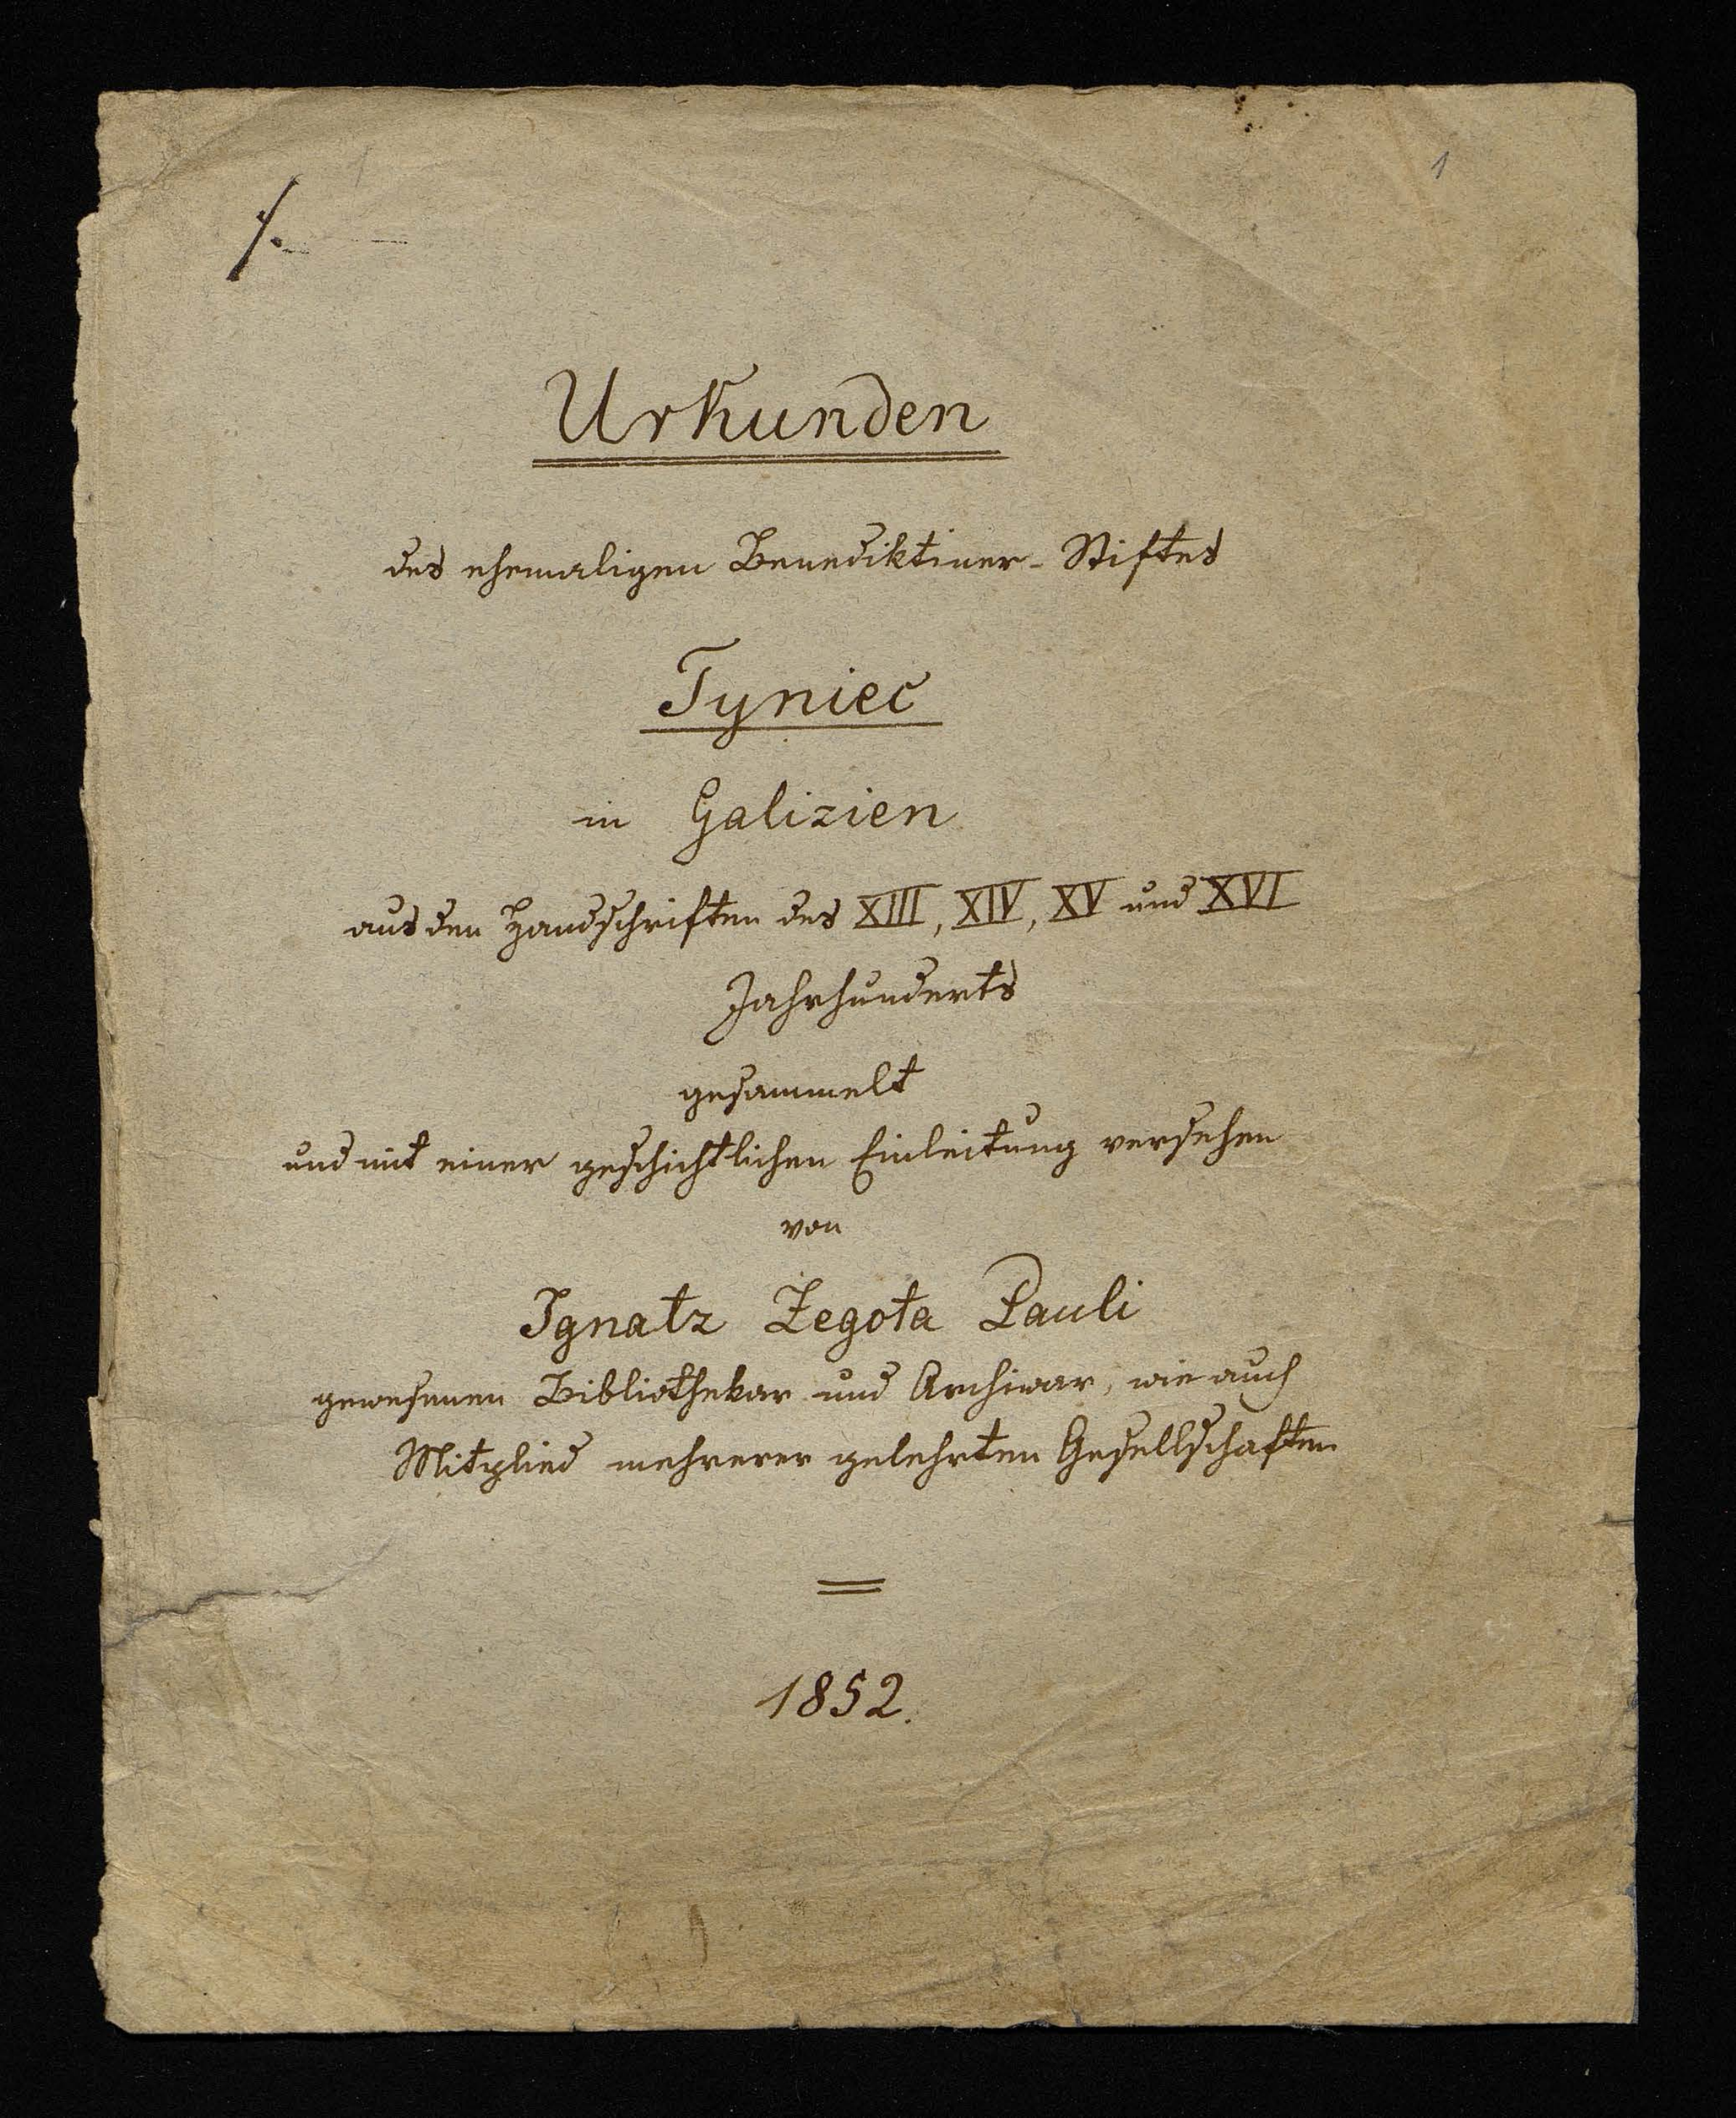 1
1.
Urkunden
des ehemaligen Benediktiner-Stiftes
Tyniec
in Galizien
aus den Handschriften des XIII, XIV, XV und XVI
Jahrhunderts
gesammelt
und mit einer geschichtlichen Einleitung versehen
von
Ignatz Żegota Pauli
gewesenen Bibliothekar und Archivar, wie auch
Mitglied mehrerer gelehrten Gesellschaften
1852.